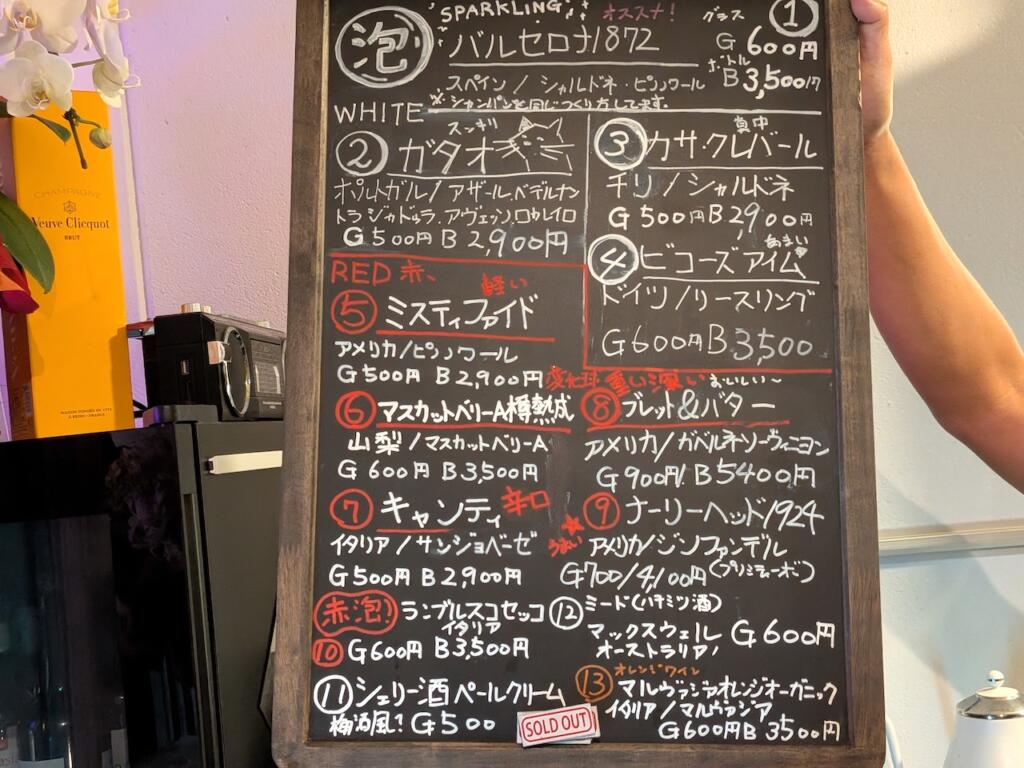 SPARKLING
オススメ!
グラス
①
泡
バルセロナ1872
G 600円
ボトル
B 3,500円
スペイン / シャルドネ・ピノノワール
※シャンパンと同じつくり方してます。
WHITE
② ガタオ
スッキリ
ポルトガル / アザール.ペデルナン
トラジャドゥラ.アヴェッソ.ロウレイロ
G 500円 B 2,900円
③ カサ・クレバール
真中
チリ / シャルドネ
G 500円 B 2,900円
④ ビコーズ アイム
あまい
ドイツ / リースリング
G 600円 B 3,500
RED 赤、
軽い
⑤ ミスティファイド
アメリカ/ピノノワール
G 500円 B 2,900円
変化球
⑥ マスカットベリーA樽熟成
山梨 / マスカットベリーA
G 600円 B 3,500円
⑦ キャンティ 辛口
イタリア / サンジョベーゼ
G 500円 B 2,900円
重い 濃い おいしい〜
⑧ ブレット&バター
アメリカ / カベルネソーヴィニヨン
G 900円/ B 5400円
⑨ ナーリーヘッド1924
★うまい
アメリカ/ジンファンデル
(プリミティーボ)
G 700/4,100円
赤泡!
ランブルスコセッコ
イタリア
⑩ G 600円 B 3,500円
⑪ シェリー酒 ペールクリーム
梅酒風? G 500
SOLD OUT
⑫ ミード(ハチミツ酒)
マックスウェル
オーストラリア!
G 600円
オレンジワイン
⑬ マルヴァジアオレンジオーガニック
イタリア / マルヴァジア
G 600円 B 3500円
CHAMPAGNE
Veuve Clicquot
BRUT
MAISON FONDÉE EN 1772
A REIMS - FRANCE